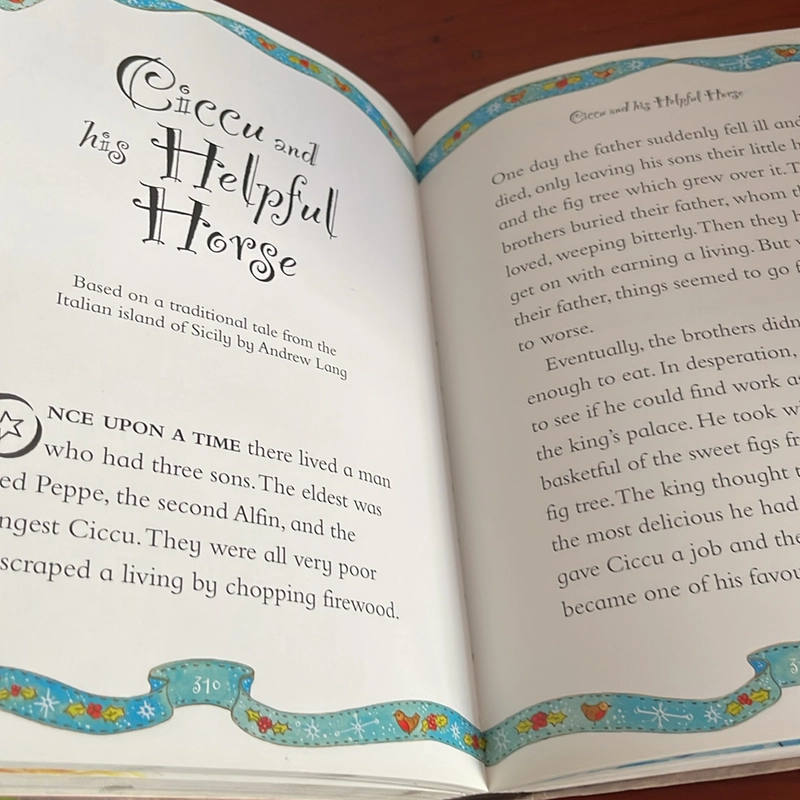 Ciccu and
his Helpful
Horse
Based on a traditional tale from the
Italian island of Sicily by Andrew Lang
NCE UPON A TIME there lived a man
who had three sons. The eldest was
ed Peppe, the second Alfin, and the
ngest Ciccu. They were all very poor
scraped a living by chopping firewood.
310
Ciccu and his Helpful Horse
One day the father suddenly fell ill and
died, only leaving his sons their little h
and the fig tree which grew over it. T
brothers buried their father, whom th
loved, weeping bitterly. Then they h
get on with earning a living. But w
their father, things seemed to go f
to worse.
Eventually, the brothers didn
enough to eat. In desperation,
to see if he could find work as
the king's palace. He took wi
basketful of the sweet figs fr
fig tree. The king thought t
the most delicious he had
gave Ciccu a job and the
became one of his favou
3